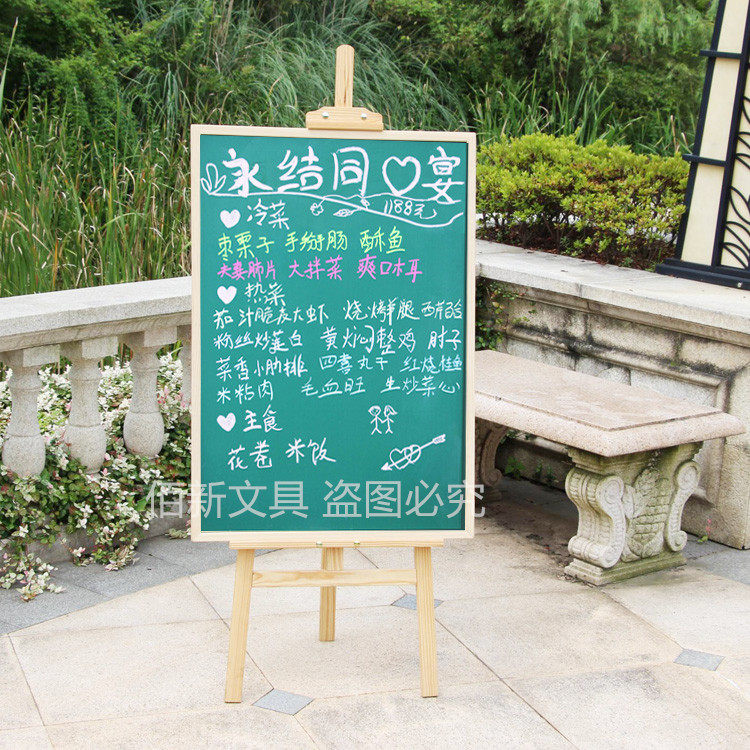 永结同♡宴
1188元
冷菜
枣栗子 手掰肠 酥鱼
夫妻肺片 大拌菜 爽口木耳
热菜
茄汁脆皮大虾 烧烤羊腿
粉丝炒蛋白 黄焖整鸡 肘子
菜香小肋排 四喜丸子 红烧桂鱼
米粘肉 毛血旺 生炒菜心
主食
花卷 米饭
佰新文具 盗图必究